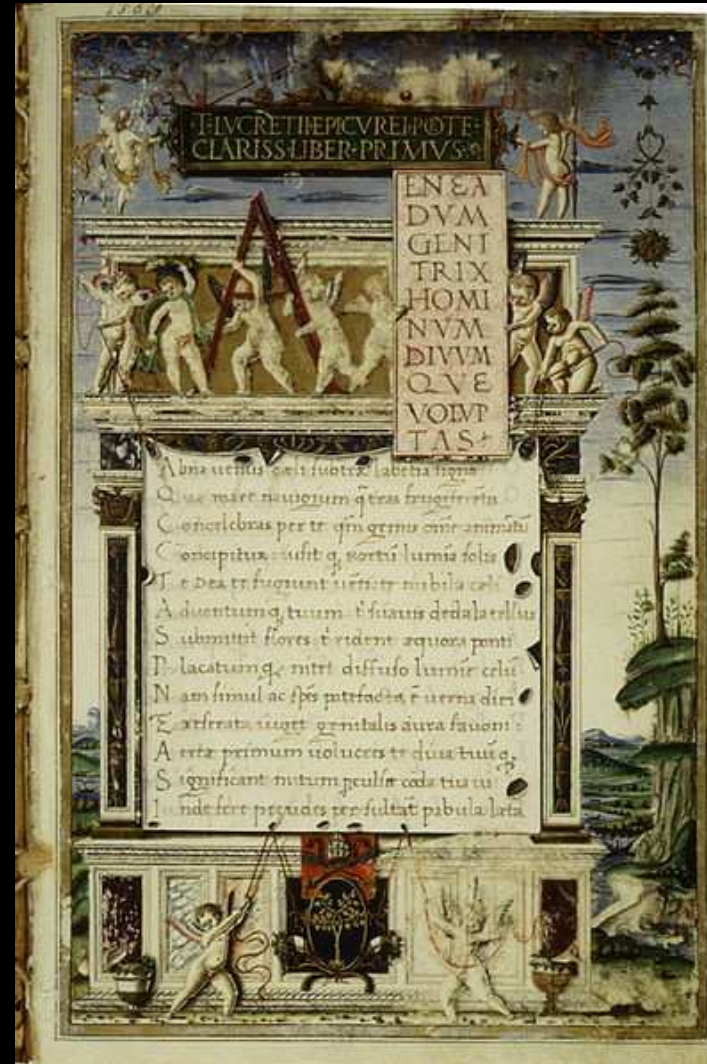 T·LVCRETII·EPICVREI·POETE·
CLARISS·LIBER·PRIMVS·
A
ENEA
DVM
GENI
TRIX
HOMI
NVM
DIVVM
QVE
VOLVP
TAS
Alma uenus cæli subter labētia signa
Quæ mare nauigerum q̃ terras frugiferētis
Concelebras per te qm̃ genus om̄e animātū
Concipitur uisit q̨ exortū lumina solis
Te Dea te fugiunt uēti te nubila cæli
Aduentumq̨ tuum t̄ suauis dedala tellus
Submittit flores t̄ rident æquora ponti
Placatumq̨ nitet diffuso lumīe celū
Nam simul ac spēs patefacta ē uerna diei
Et reserata uiget genitalis aura fauoni
Aeriæ primum uolucres te diua tuūq̨
Significant initum perculsæ corda tua ui
Inde fere pecudes persultāt pabula læta